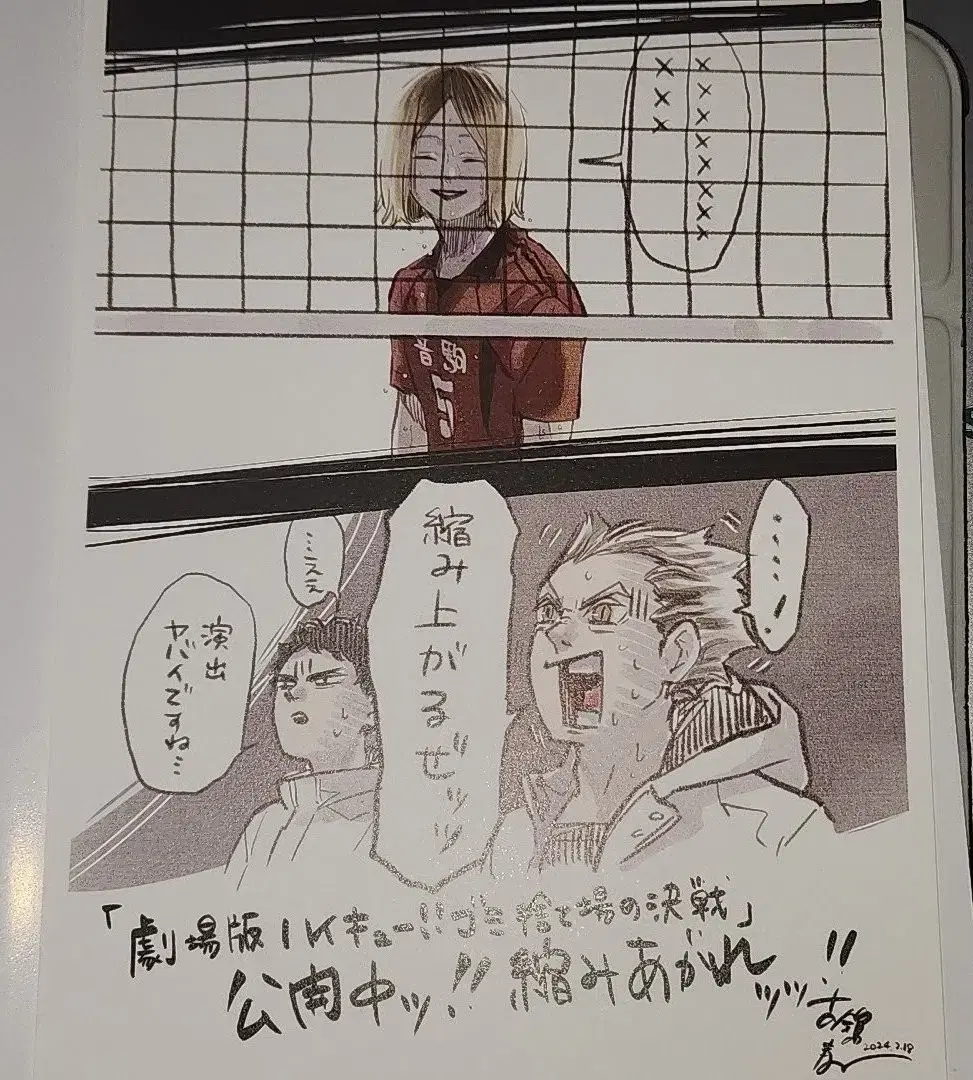 ××××××××
×××
音駒
5
……！
縮み上がるぜッッ
…ええ
演出
ヤバイですね…
「劇場版ハイキュー!!ゴミ捨て場の決戦」
公開中ッ!!縮みあがれッッッ!!
2024.2.18